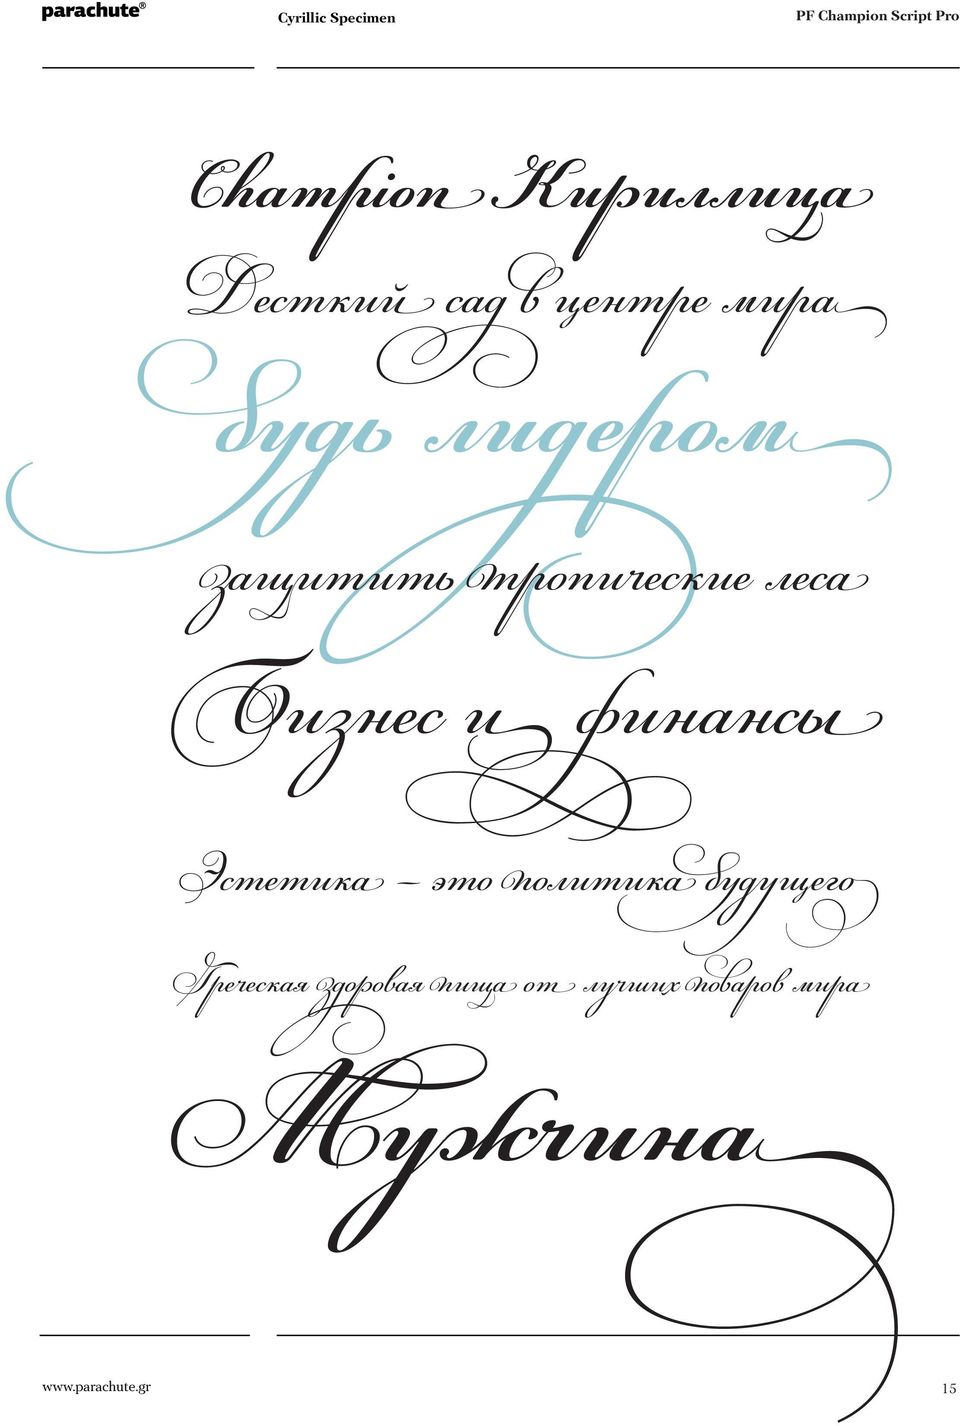 parachute®
Cyrillic Specimen
PF Champion Script Pro
Champion Кириллица
Десткий сад в центре мира
будь лидером
защитить тропические леса
Бизнес и финансы
Эстетика – это политика будущего
Греческая здоровая пища от лучших поваров мира
Мужчина
www.parachute.gr
15